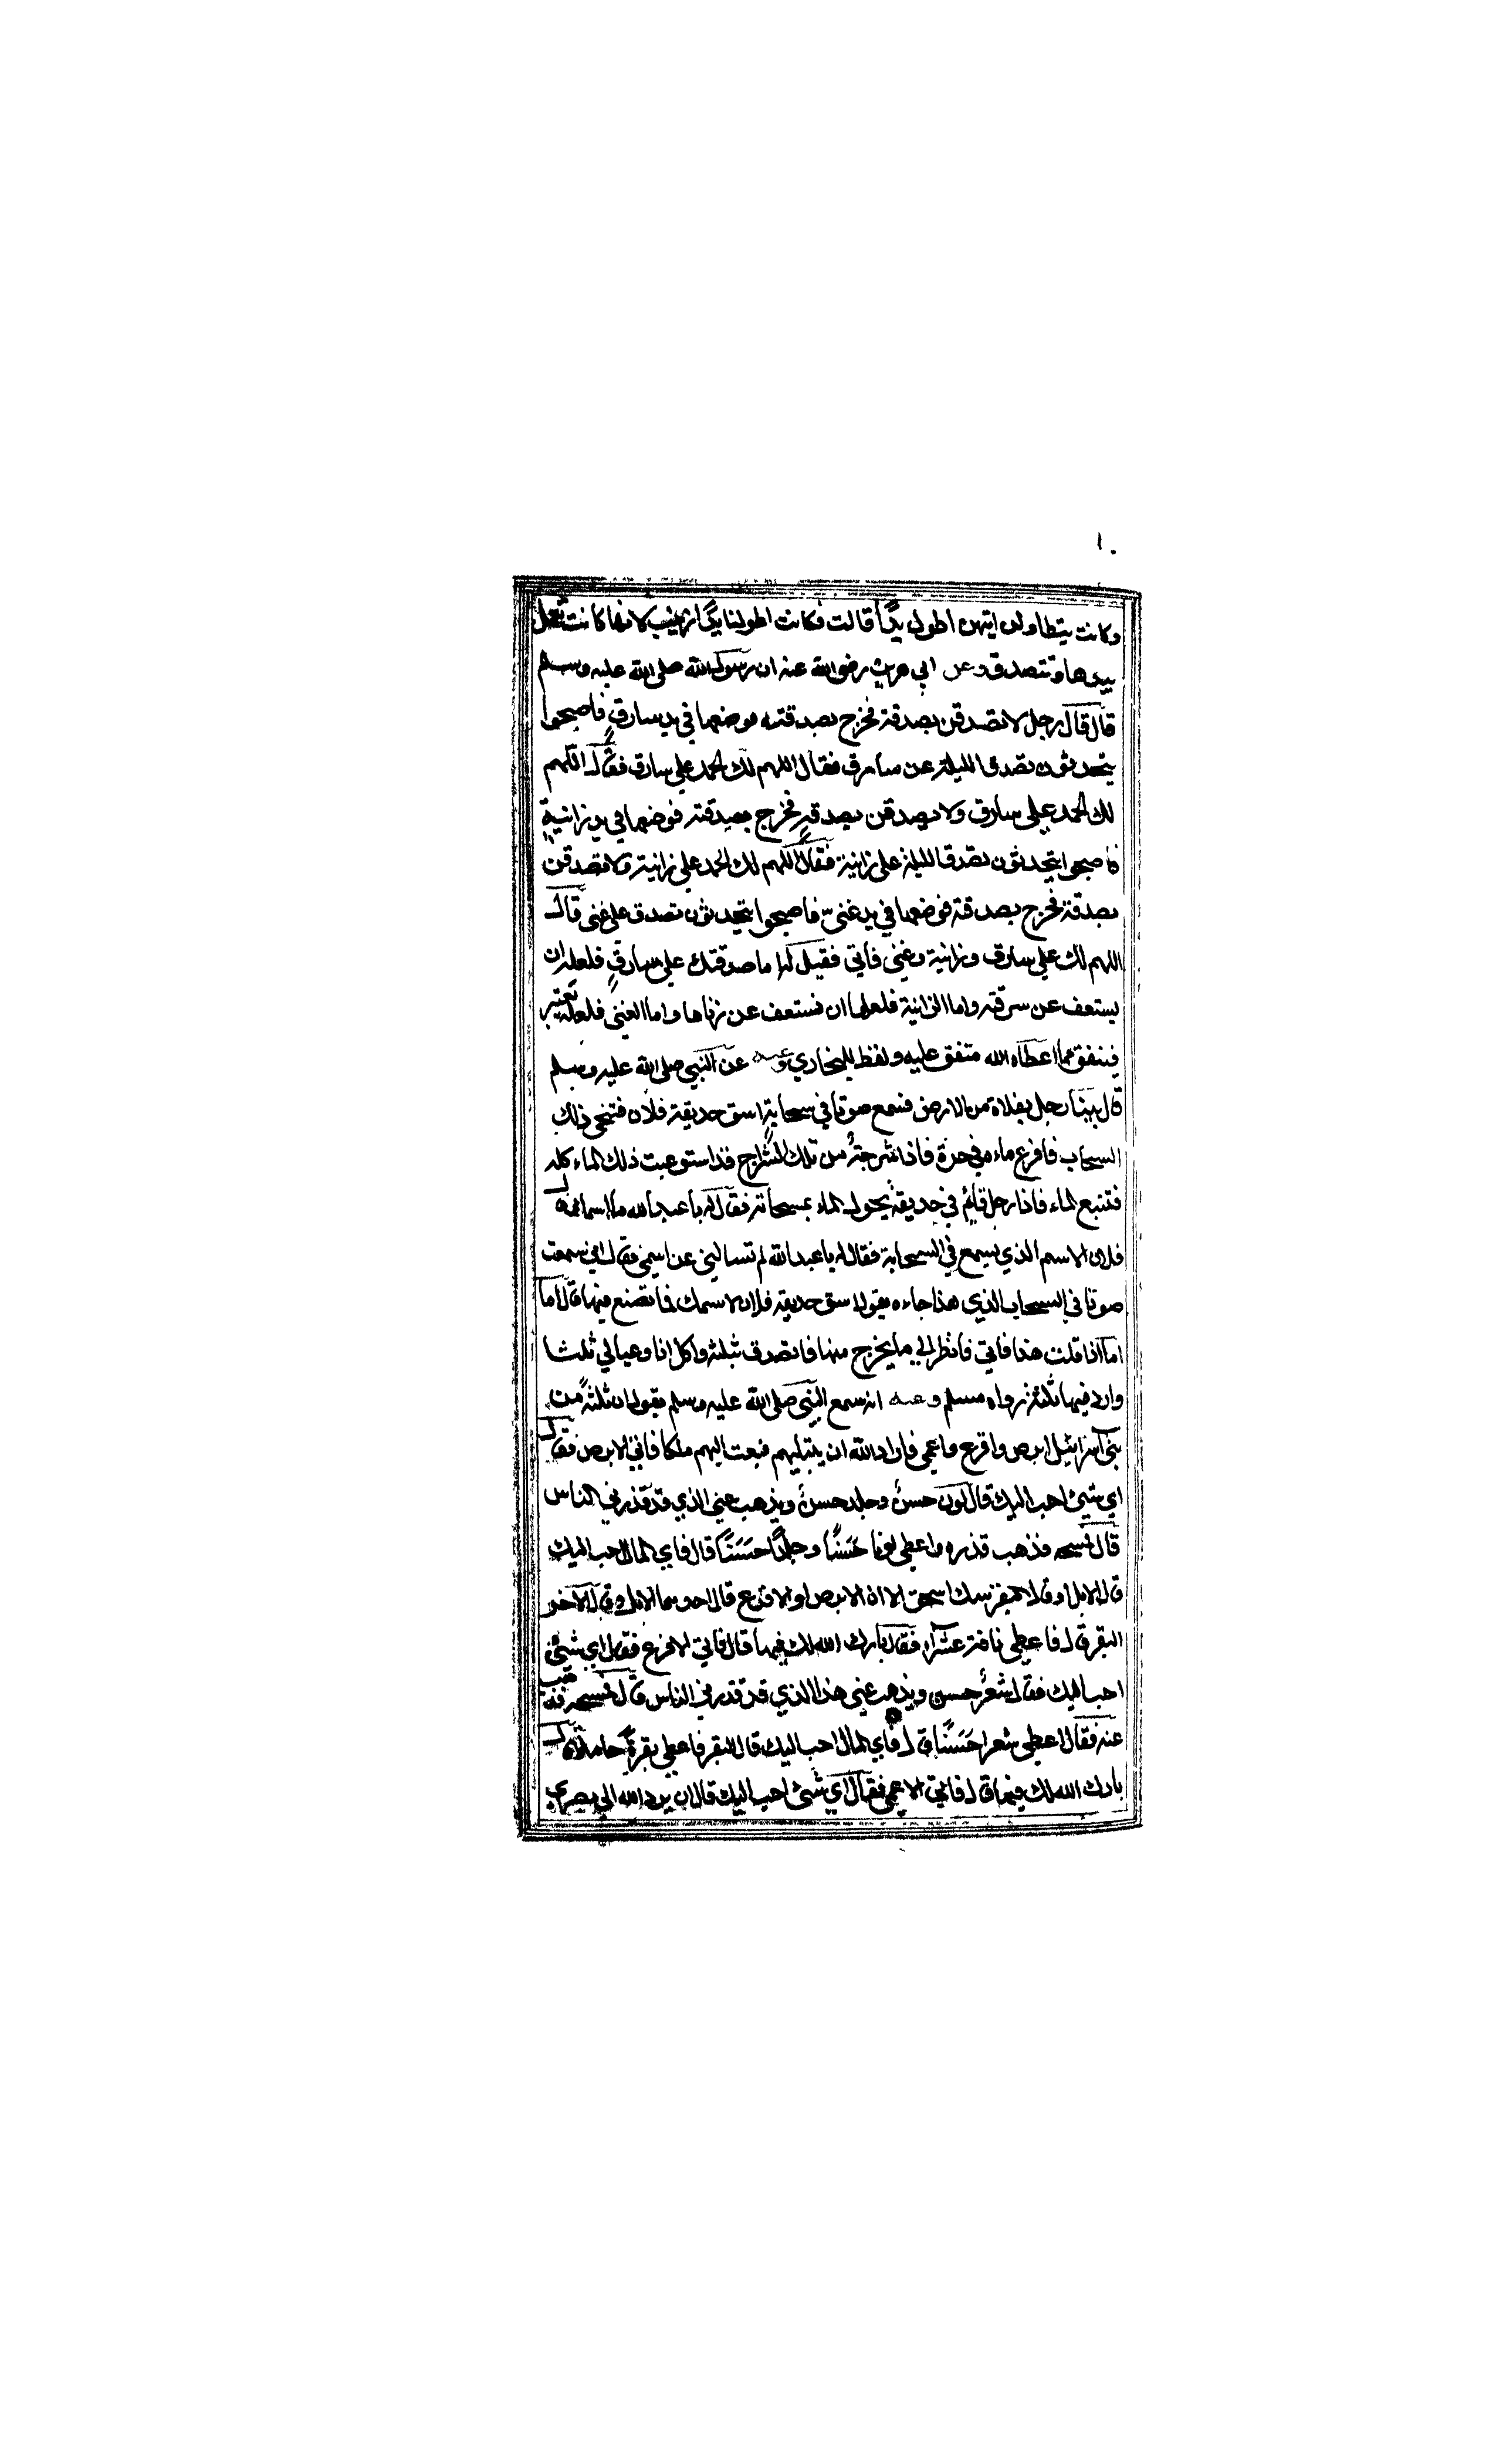 ١٠
وكانت يتطاولن ايتهن اطول يدًا قالت فكانت اطولنا يدًا زينب لانها كانت تعمل
بيدها وتتصدق وعن ابي هريرة رضي الله عنه ان رسول الله صلى الله عليه وسلم
قال قال رجل لاتصدقن بصدقة فخرج بصدقته فوضعها في يد سارقٍ فاصبحوا
يتحدثون تصدق الليلة عن سارق فقال اللهم لك الحمد على سارق فقال اللهم
لك الحمد على سارق ولاتصدقن بصدقةٍ فخرج بصدقته فوضعها في يد زانيةٍ
فاصبحوا يتحدثون تصدق الليلة على زانية فقال اللهم لك الحمد على زانية ولاتصدقن
بصدقة فخرج بصدقة فوضعها في يد غنيّ فاصبحوا يتحدثون تصدق على غنى قال
اللهم لك على سارق وزانية وغني فأتي فقيل له اما صدقتك على سارقٍ فلعله ان
يستعف عن سرقته واما الزانية فلعلها ان تستعف عن زناها واما الغني فلعله يعتبر
فينفق مما اعطاه الله متفق عليه ولفظ للبخاري وعنه عن النبي صلى الله عليه وسلم
قال بينا رجل بفلاة من الارض فسمع صوتا في سحابةٍ اسق حديقة فلان فتنحى ذلك
السحاب فافرغ ماءه في حرة فاذا شرجةٌ من تلك الشراج قد استوعبت ذلك الماء كله
فتتبع الماء فاذا رجل قائم في حديقةٍ يحول الماء بمسحاته فقال له يا عبد الله ما اسمك قال
فلان الاسم الذي يسمع في السحابة فقال له يا عبد الله لم تسالني عن اسمي فقال اني سمعت
صوتا في السحاب الذي هذا جاءه يقول اسق حديقة فلان لاسمك فما تصنع فيها قال اما
اما اذا قلت هذا فاني فانظر الى ما يخرج منها فاتصدق بثلثه واكل انا وعيالي ثلثا
وارد فيها ثلثه رواه مسلم وعنه انه سمع النبي صلى الله عليه وسلم يقول ان ثلثةً من
بني اسرائيل ابرص واقرع واعمى فاراد الله ان يبتليهم فبعث اليهم ملكا فاتى الابرص فقال
اي شيئ احب اليك قال لون حسنٌ وجلد حسنٌ ويذهب عني الذي قد قذرني الناس
قال فمسحه فذهب قذره واعطى لونا حَسَنًا وجلدًا حَسَنًا قال فاي المال احب اليك
قال الابل او قال البقر شك اسحق الا ان الابرص او الاقرع قال احدهما الابل وقال الآخر
البقر قال فاعطى ناقة عشراء فقال بارك الله لك فيها قال فاتى الاقرع فقال اي شيئ
احب اليك فقال شعرٌ حسن ويذهب عني هذا الذي قد قذرني الناس قال فمسحه فذهب
عنه فقال اعطي شعرا حَسَنًا قال فاي المال احب اليك قال البقر فاعطي بقرةً حاملا قال
بارك الله لك فيها قال فاتى الاعمى فقال اي شئ احب اليك قال ان يرد الله الي بصري